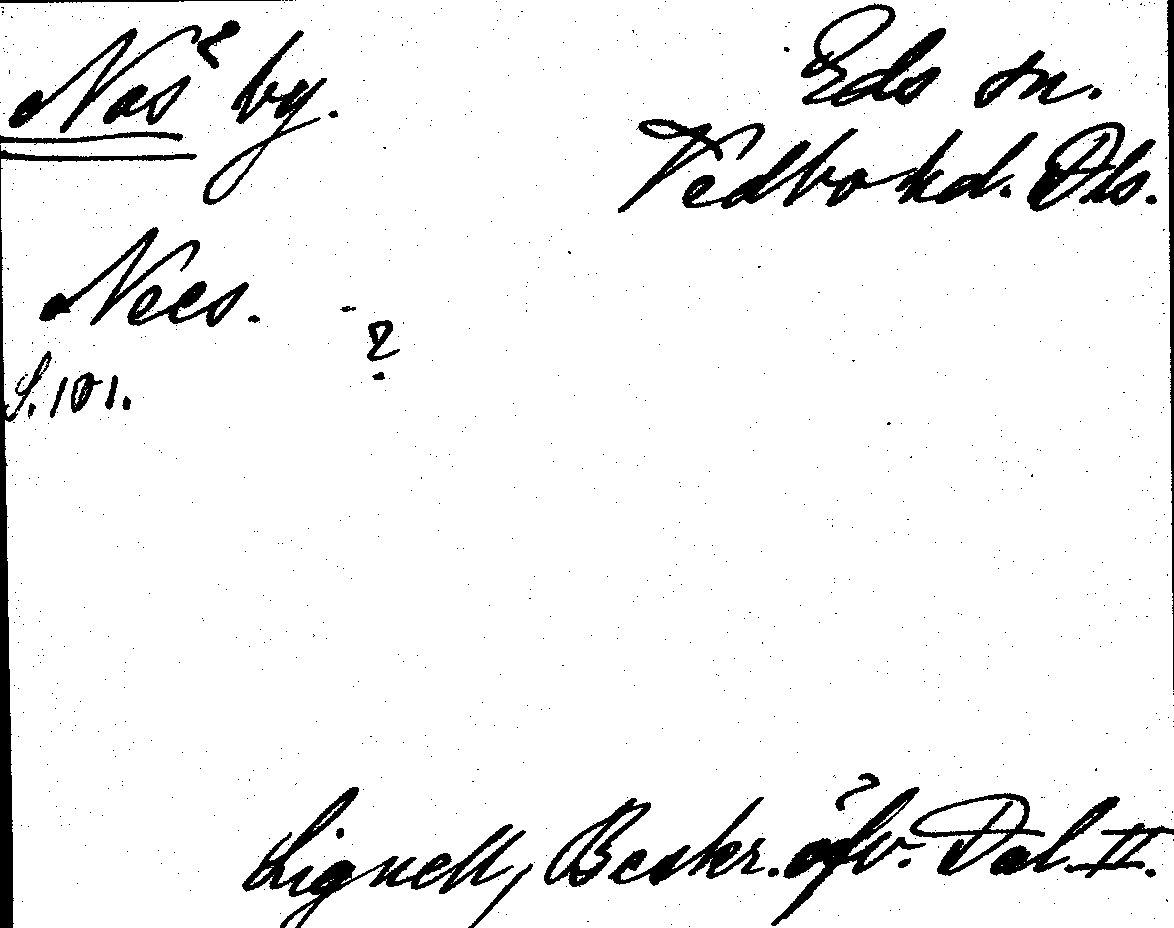 Nas? by.
Eds sn.
Vedbo hd. Dls.
Nees. - ?
S. 101.
Lignell, Beskr. öfv. Dal II.